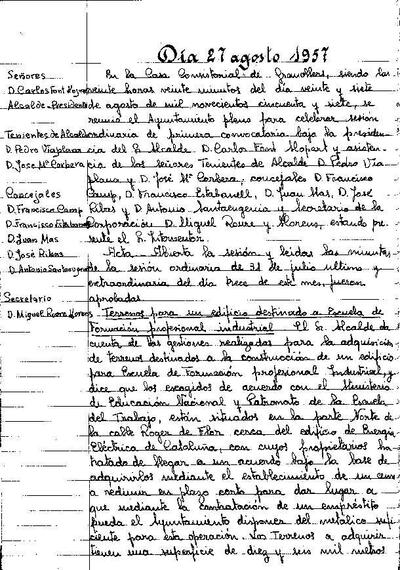 Día 27 agosto 1957
Señores
D. Carlos Font Llopart
Alcalde-Presidente
Tenientes de Alcalde
D. Pedro Viaplana
D. José Mª Corbera
Concejales
D. Francisco Camp
D. Francisco Estabanell
D. Juan Mas
D. José Ribas
D. Antonio Santaeugenia
Secretario
D. Miguel Roure Llorens
En la Casa Consistorial de Granollers, siendo las
veinte horas veinte minutos del día veinte y siete
de agosto de mil novecientos cincuenta y siete, se
reunió el Ayuntamiento pleno para celebrar sesión
ordinaria de primera convocatoria bajo la presiden-
cia del S. Alcalde D. Carlos Font Llopart y asisten-
cia de los señores Tenientes de Alcalde D. Pedro Via
plana y D. José Mª Corbera, concejales D. Francisco
Camp, D. Francisco Estabanell, D. Juan Mas, D. José
Ribas y D. Antonio Santaeugenia y Secretario de la
Corporación D. Miguel Roure y Llorens, estando pre-
sente el S. Interventor.
Acta. Abierta la sesión y leidas las minutas
de la sesión ordinaria de 31 de julio ultimo y
extraordinaria del día trece de este mes, fueron
aprobadas.
Terrenos para un edificio destinado a Escuela de
Formación profesional industrial El Sr. Alcalde da
cuenta de las gestiones realizadas para la adquisición
de terrenos destinados a la construcción de un edificio
para Escuela de Formación profesional Industrial, y
dice que los escogidos de acuerdo con el Ministerio
de Educación Nacional y Patronato de la Escuela
del Trabajo, están situados en la parte Norte de
la calle Roger de Flor cerca del edificio de Energía
Eléctrica de Cataluña, con cuyos propietarios ha
tratado de llegar a un acuerdo bajo la base de
adquirirlos mediante el establecimiento de un censo
a redimir en plazo corto para dar lugar a
que mediante la contratación de un empréstito
pueda el Ayuntamiento disponer del metálico sufi
ciente para esta operación. Los Terrenos a adquirir
tienen una superficie de diez y seis mil metros